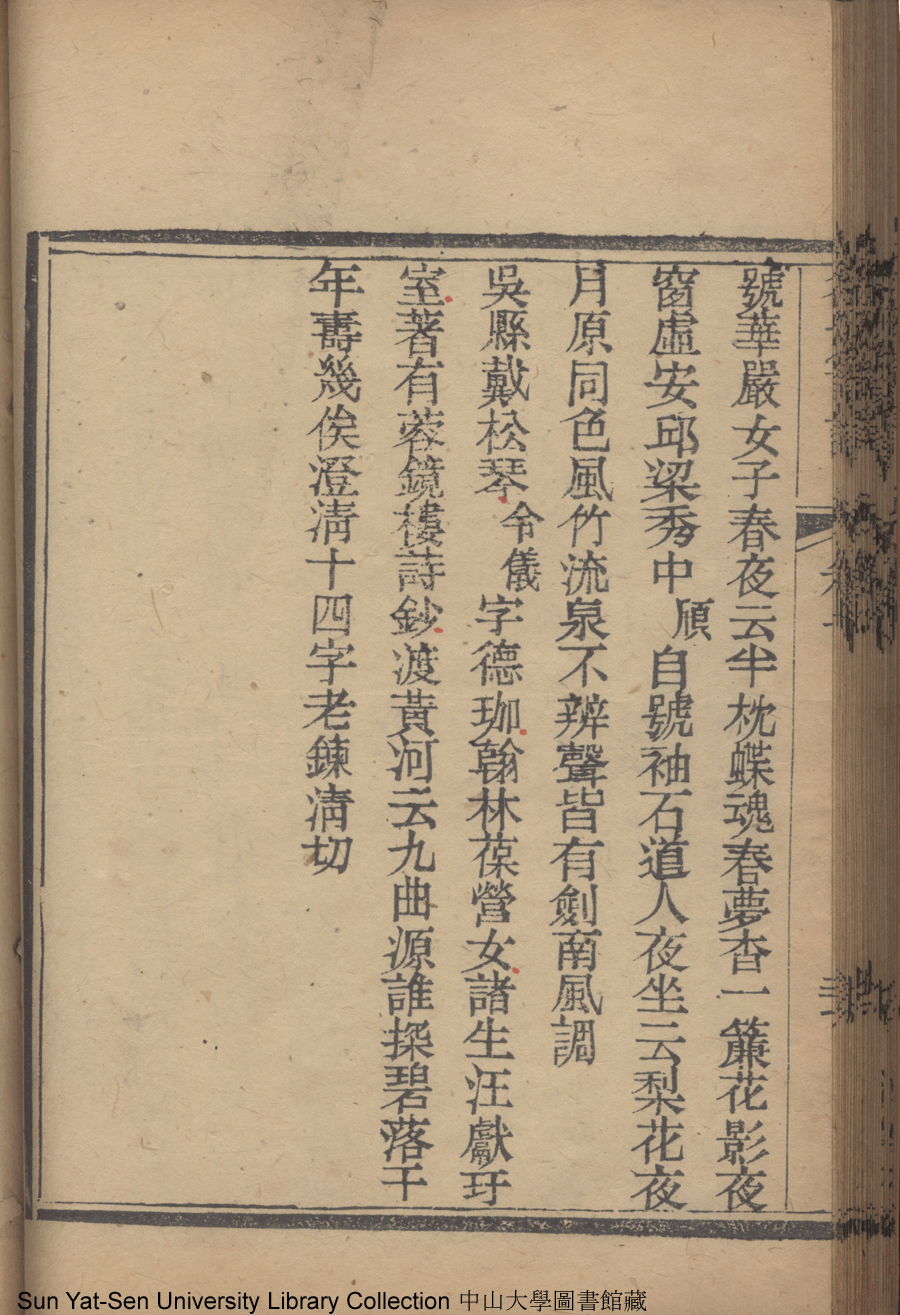 號華嚴女子春夜云半枕蝶魂春夢杳一簾花影夜
窗虛安邱梁秀中頎自號袖石道人夜坐云梨花夜
月原同色風竹流泉不辨聲皆有劍南風調
吳縣戴松琴令儀字德珈翰林葆瑩女諸生汪獻玗
室著有蓉鏡樓詩鈔渡黃河云九曲源誰探碧落千
年壽幾俟澄清十四字老鍊清切
Sun Yat-Sen University Library Collection 中山大學圖書館藏